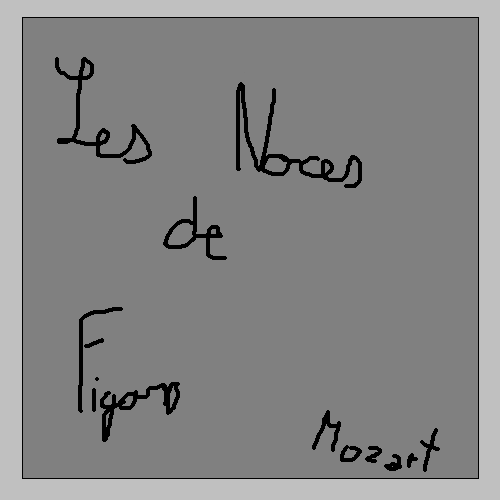 Les Noces
de
Figaro
Mozart